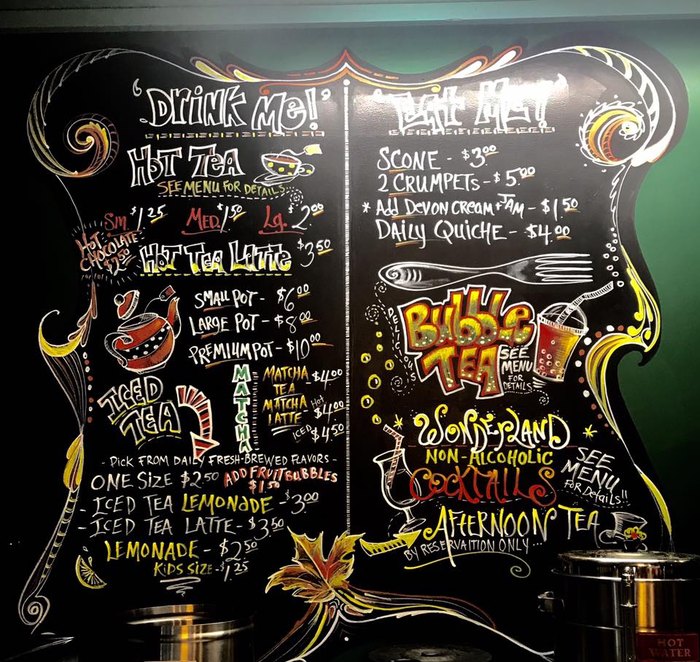 'Drink Me!'
HOT TEA
SEE MENU FOR DETAILS...
Sm. $1.25 MED. $1.50 Lg. $2.00
HOT CHOCOLATE $2.50
HOT TEA LATTE $3.50
SMALL POT - $6.00
LARGE POT - $8.00
PREMIUM POT - $10.00
ICED TEA
MATCHA
MATCHA TEA $4.00
MATCHA LATTE HOT $4.00
ICED $4.50
- PICK FROM DAILY FRESH-BREWED FLAVORS -
ONE SIZE $2.50 ADD FRUIT BUBBLES $1.50
- ICED TEA LEMONADE - $3.00
- ICED TEA LATTE - $3.50
LEMONADE - $2.50
KIDS SIZE - $1.25
'Eat Me!'
SCONE - $3.00
2 CRUMPETS - $5.00
* Add DEVON CREAM + JAM - $1.50
DAILY QUICHE - $4.00
Bubble TEA
SEE MENU FOR DETAILS
WONDERLAND
NON-ALCOHOLIC
COCKTAILS
SEE MENU FOR DETAILS!!
AFTERNOON TEA
BY RESERVAITION ONLY...
HOT WATER